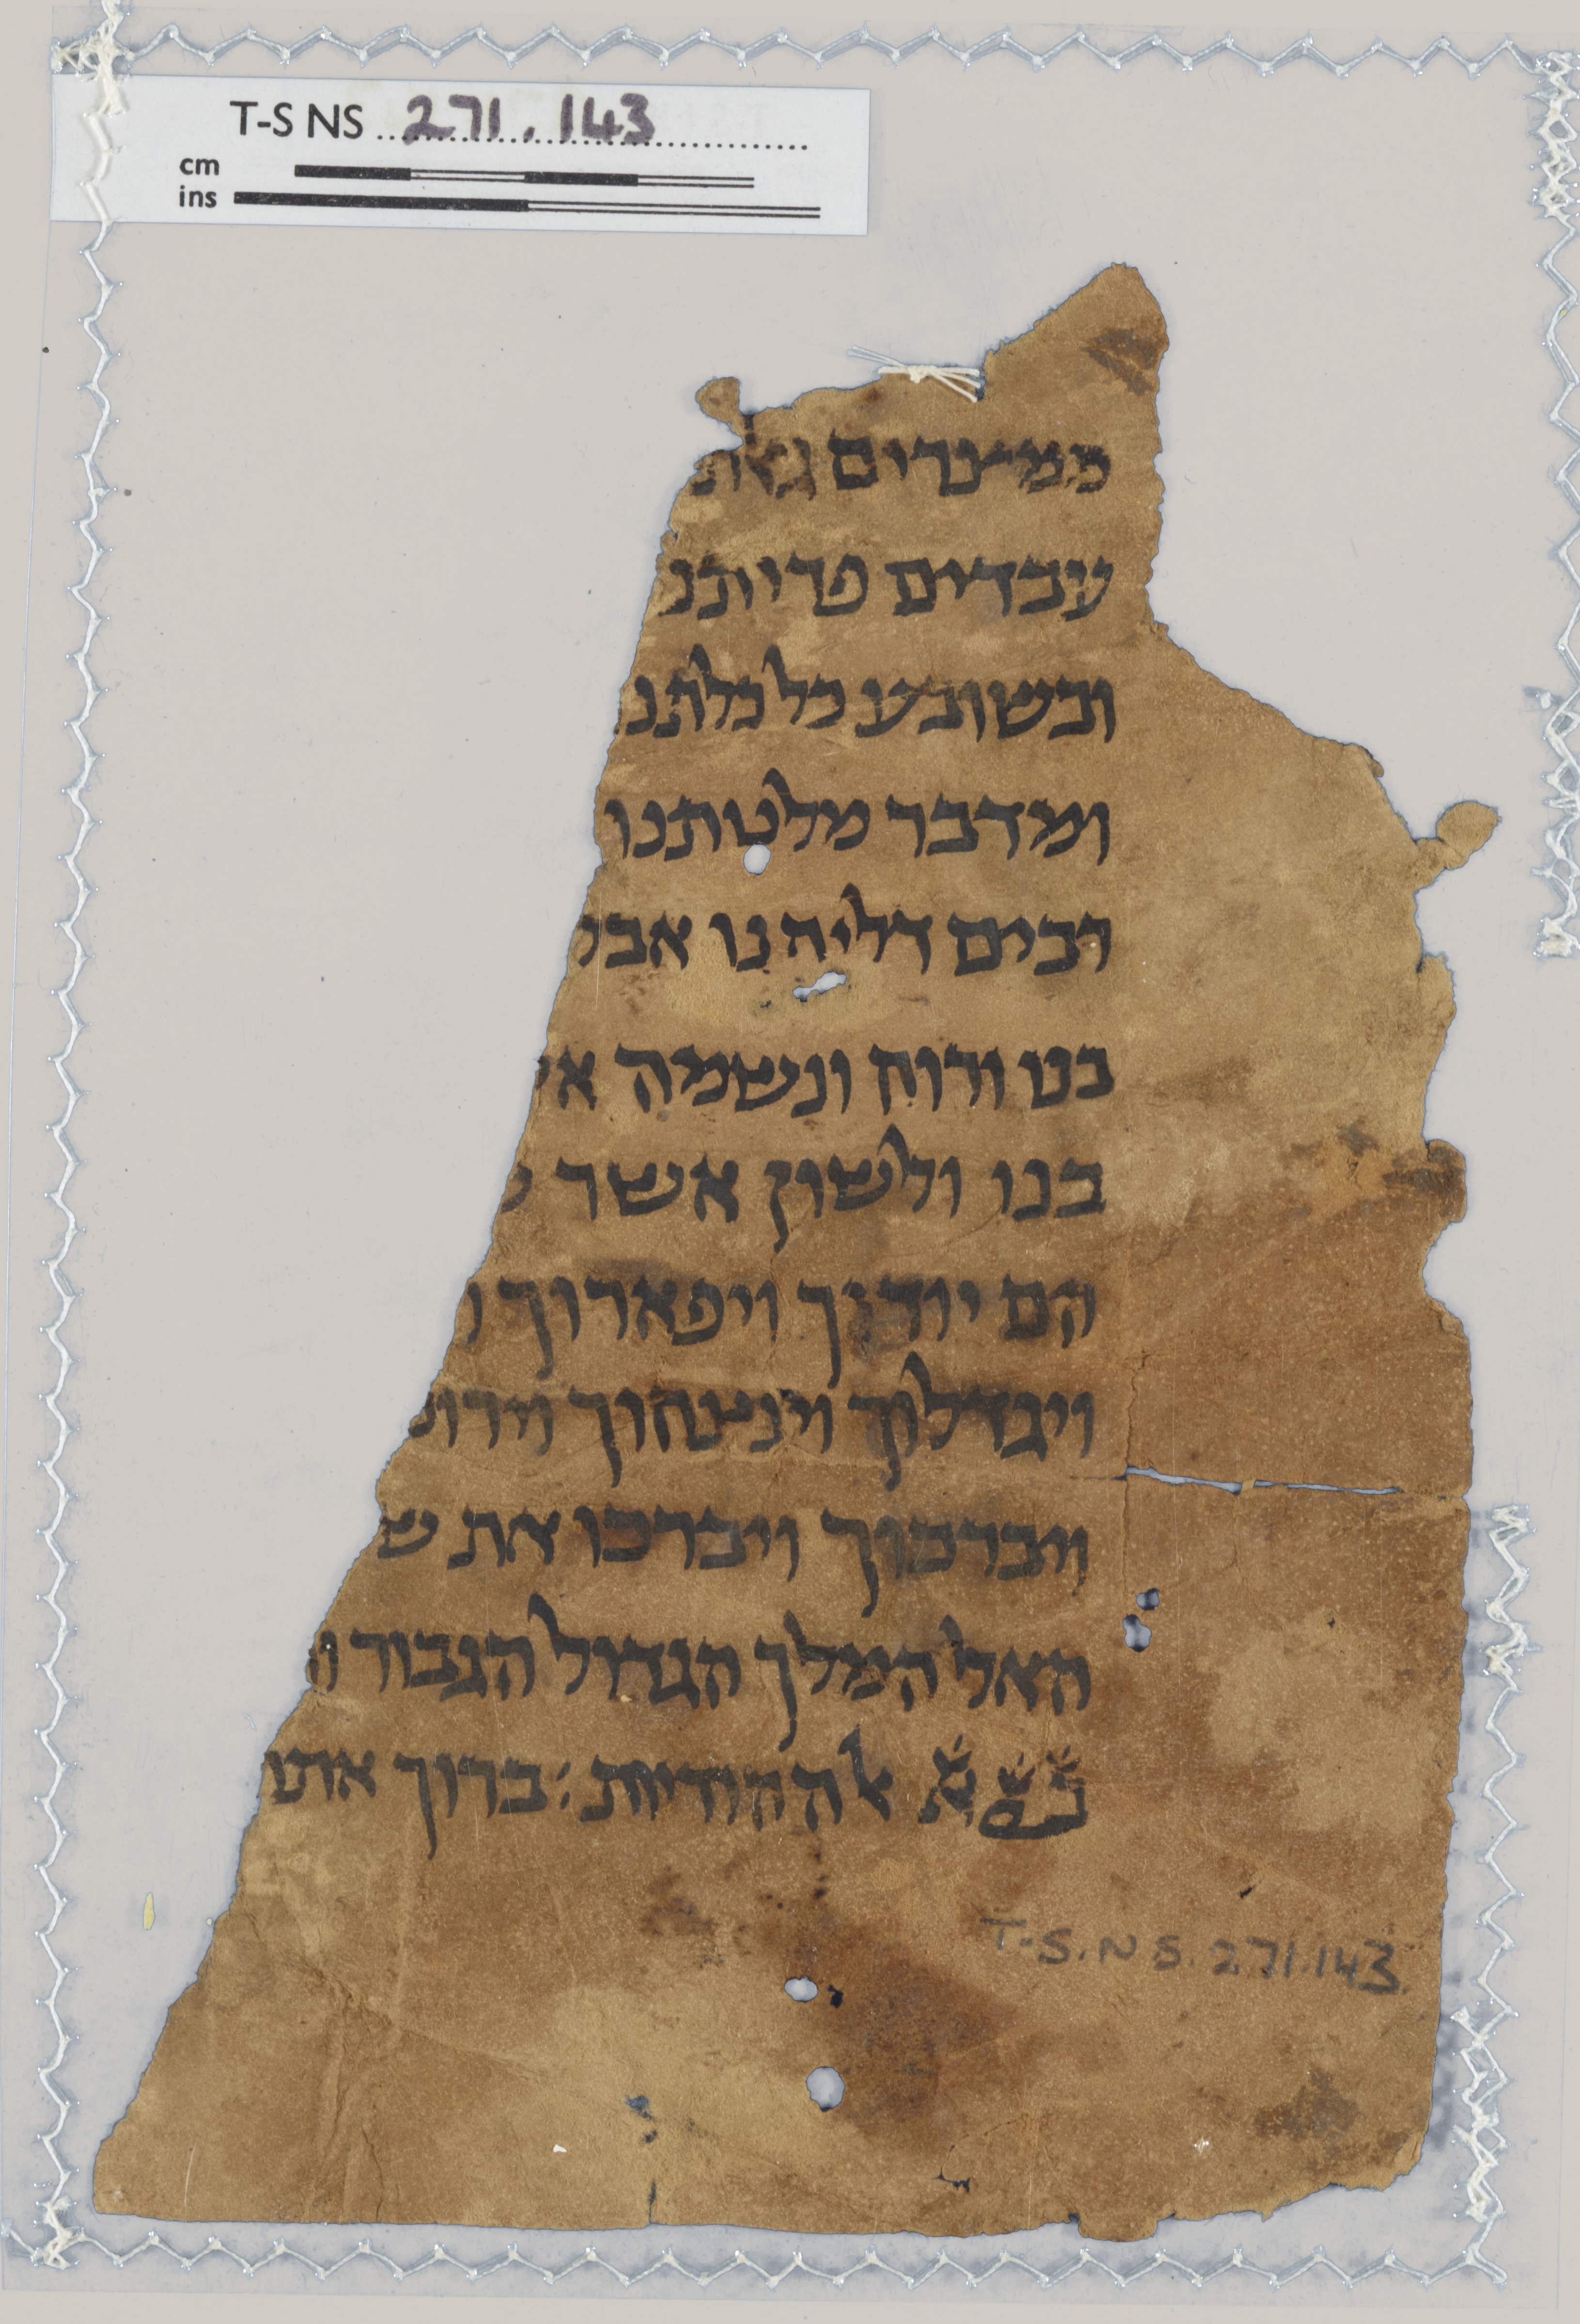 T-S NS 271.143
cm
ins
ממצרים גאל
עבדים פדיתנ
ובשובע כלכלתנ
ומדבר מלטתנו
רבים דליתנו אב
בנו ורוח ונשמה א
בנו ולשון אשר
הם יודוך ויפארוך ו
ויגדלוך וינצחוך וירומ
ויברכוך ויברכו את ש
האל המלך הגדול הגבור ו
להודיות: ברוך אתה
T-S.NS.271.143